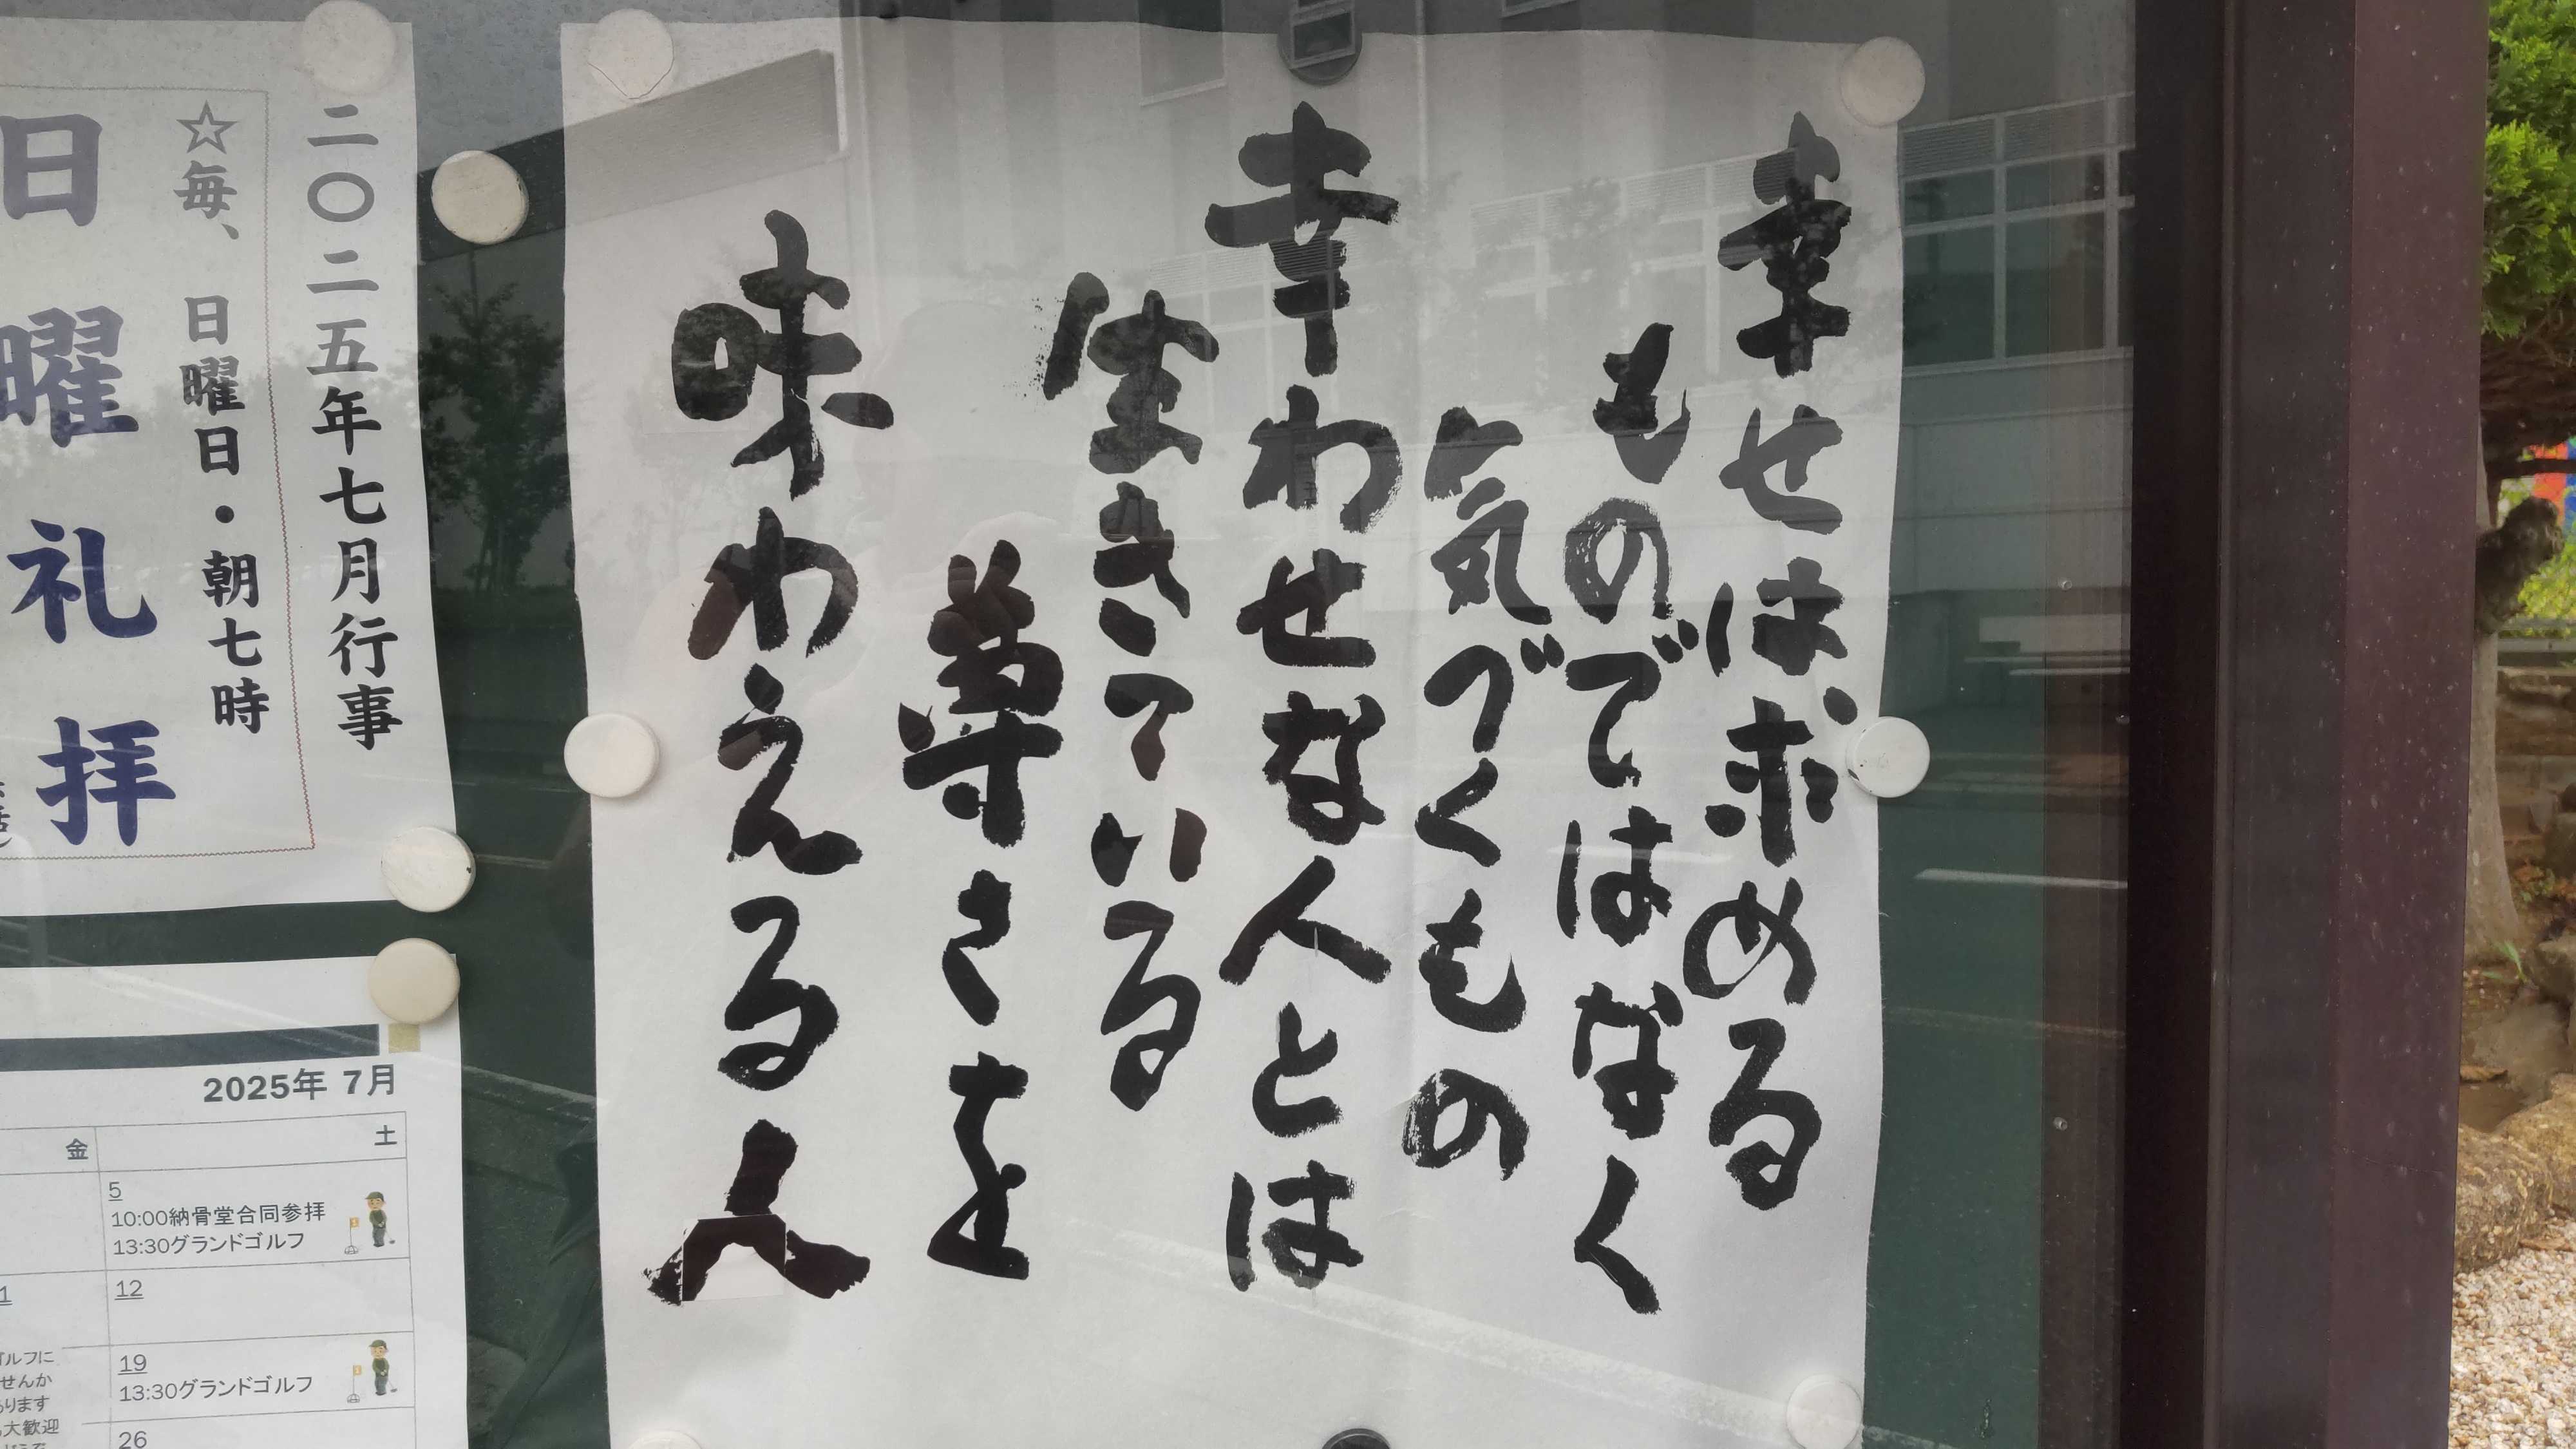 幸せは、求める
ものではなく
気づくもの
幸わせな人とは
生きている
尊さを
味わえる人
二〇二五年七月行事
☆毎、日曜日・朝七時
日曜礼拝
2025年 7月
金
土
5
10:00納骨堂合同参拝
13:30グランドゴルフ
12
19
13:30グランドゴルフ
26
ゴルフに
せんか
あります
大歓迎